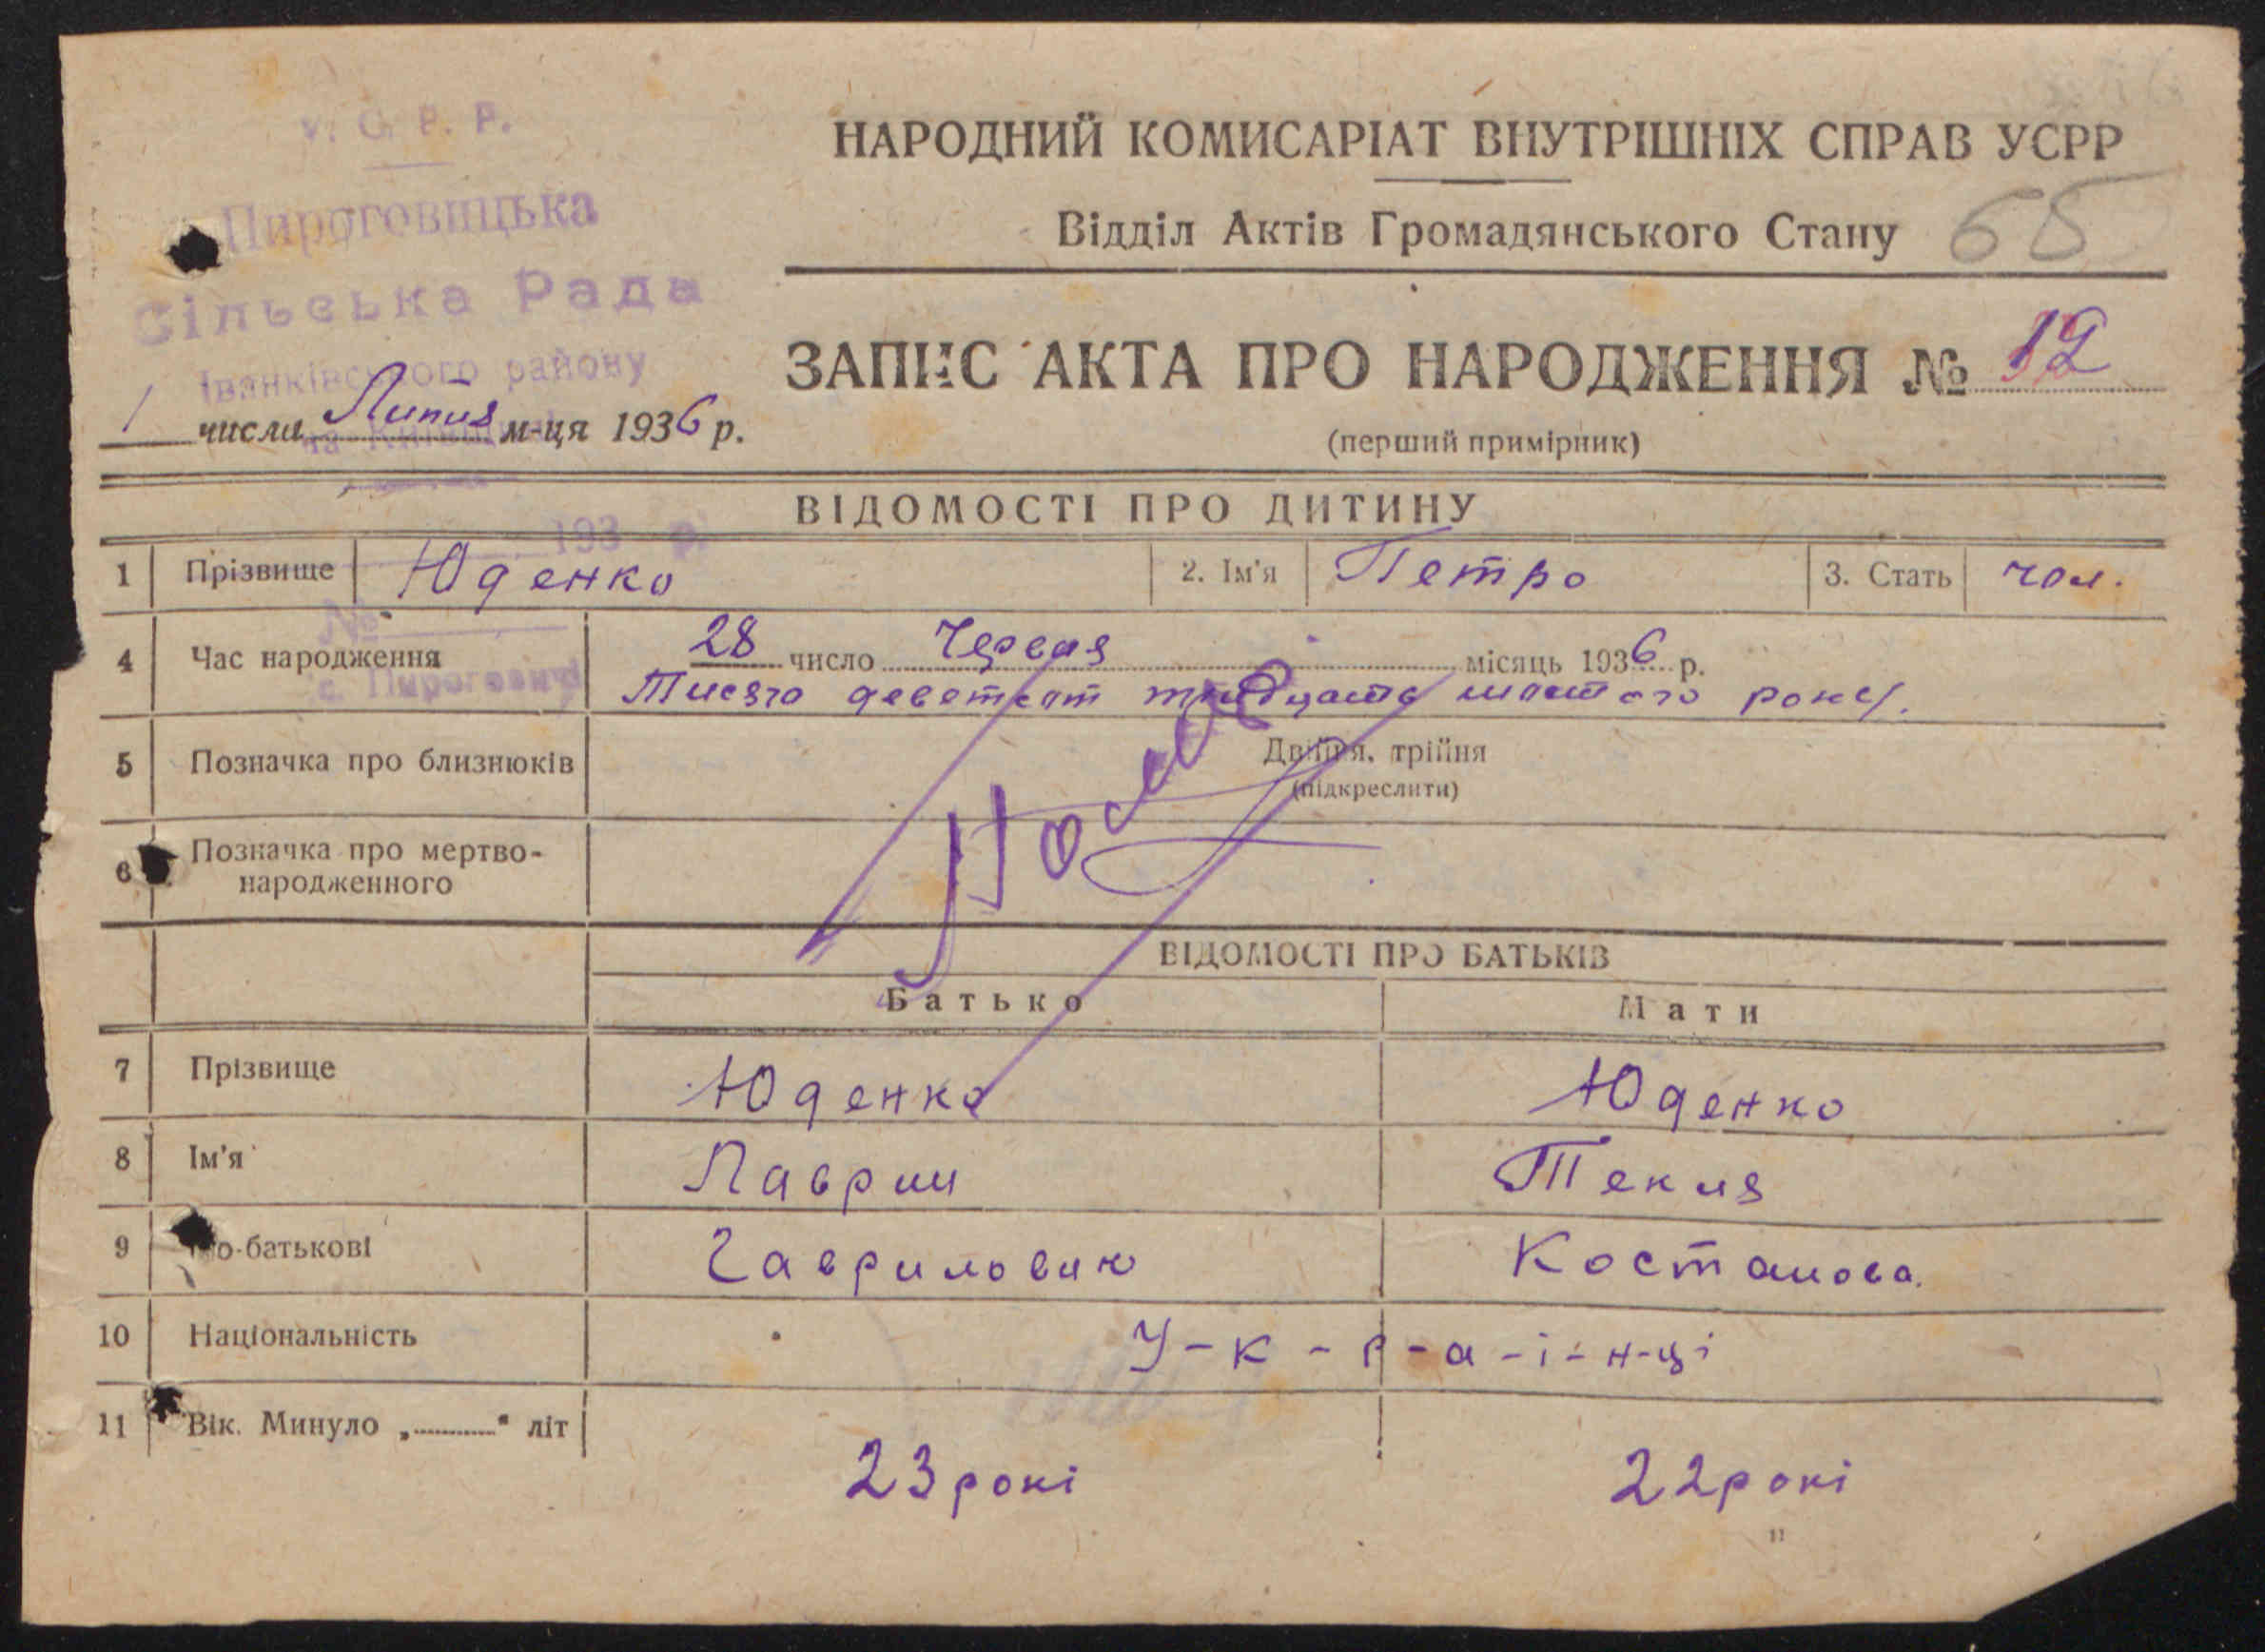 У. С. Р. Р.
Пироговицька
Сільська Рада
Іванківського району
на Київщині
193 р.
№
с. Пироговичі
1 числа Липня м-ця 1936 р.
НАРОДНИЙ КОМИСАРІАТ ВНУТРІШНІХ СПРАВ УСРР
Відділ Актів Громадянського Стану 65
ЗАПИС АКТА ПРО НАРОДЖЕННЯ № 12
(перший примірник)
ВІДОМОСТІ ПРО ДИТИНУ
1 Прізвище Юденко 2. Ім'я Петро 3. Стать чол.
4 Час народження 28 число Червня місяць 1936 р.
Тисячо деветсят тридцать шостого року.
5 Позначка про близнюків Двійня, трійня
(підкреслити)
6 Позначка про мертво-
народженного
Помер
ВІДОМОСТІ ПРО БАТЬКІВ
Батько Мати
7 Прізвище Юденко Юденко
8 Ім'я Лаврин Текля
9 По-батькові Гаврилович Костанова.
10 Національність У-к-р-а-ї-н-ці
11 Вік. Минуло „......“ літ
23 рокі 22 рокі
11